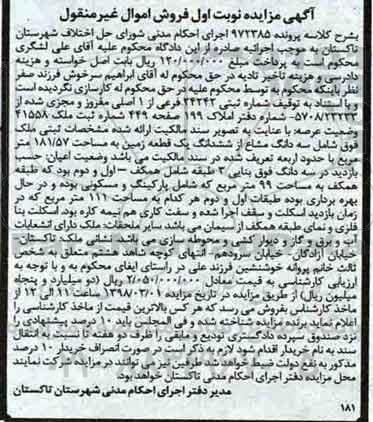 آگهی مزایده نوبت اول فروش اموال غیرمنقول
بشرح کلاسه پرونده ۹۷۲۳۸۵ اجرای احکام مدنی شورای حل اختلاف شهرستان
تاکستان به موجب اجرائیه صادره از این دادگاه محکوم علیه آقای علی لشگری
محکوم است به پرداخت مبلغ ۱۲۰/۰۰۰/۰۰۰ ریال بابت اصل خواسته و هزینه
دادرسی و هزینه تاخیر تادیه در حق محکوم له آقای ابراهیم سرخوش فرزند صفر
نظر باینکه محکوم به توسط محکوم علیه در حق محکوم له کارسازی نگردیده است
و با استناد به توقیف شماره ثبتی ۲۴۲۴۲ فرعی از ۱ اصلی مفروز و مجزی شده از
۵۷۰۸/۲۳۲۳۳- شماره دفتر املاک ۱۹۹ صفحه ۴۴۹ شماره ثبت ملک ۴۱۵۵۸
وضعیت عرصه: با عنایت به تصویر سند مالکیت ارائه شده مشخصات ثبتی ملک
فوق شامل سه دانگ مشاع از ششدانگ یک قطعه زمین به مساحت ۱۸۱/۵۷ متر
مربع با حدود اربعه تعریف شده در سند مالکیت می باشد وضعیت اعیان: حسب
بازدید در سه دانگ فوق بنایی ۳ طبقه شامل همکف – اول و دوم بود که طبقه
همکف به مساحت ۹۹ متر مربع که شامل پارکینگ و مسکونی بوده و در حال
بهره برداری بوده طبقات اول و دوم هر کدام به مساحت ۱۱۱ متر مربع که در
زمان بازدید اسکلت و سقف اجرا شده و سفت کاری هم نیمه کاره بود. اسکلت بنا
فلزی و نمای طبقه همکف از سیمان می باشد سایر ملحقات: ملک دارای انشعابات
آب و برق و گاز و دیوار کشی و محوطه سازی می باشد نشانی ملک: تاکستان-
خیابان آزادگان- خیابان سرودهم- انتهای کوچه شاهد هشتم متعلق به شخص
ثالث خانم پروانه خوشنشین فرزند علی در راستای ایفای محکوم به و با توجه به
ارزیابی کارشناسی به قیمت معادل ۲/۰۵۰/۰۰۰/۰۰۰ ریال (دو میلیارد و پنجاه
میلیون ریال) از طریق مزایده در تاریخ مزایده ۱۳۹۸/۰۳/۰۱ ساعت ۱۱ الی ۱۲ از
ماخذ کارشناس بفروش می رسد که هر کس بالاترین قیمت از ماخذ کارشناسی را
اعلام نماید برنده مزایده شناخته شده و فی المجلس باید ۱۰ درصد پیشنهادی را
نزد صندوق سپرده دادگستری تودیع و مابقی را ظرف دو هفته پرداخت به انتقال
سند به نام خریدار اقدام شود لازم به ذکر است در صورت انصراف خریدار ۱۰ درصد
مذکور به نفع دولت ضبط خواهد شد طرفین نیز می توانند در مزایده شرکت نمایند
محل مزایده دفتر اجرای احکام مدنی تاکستان خواهد بود.
مدیر دفتر اجرای احکام مدنی شهرستان تاکستان
۱۸۱